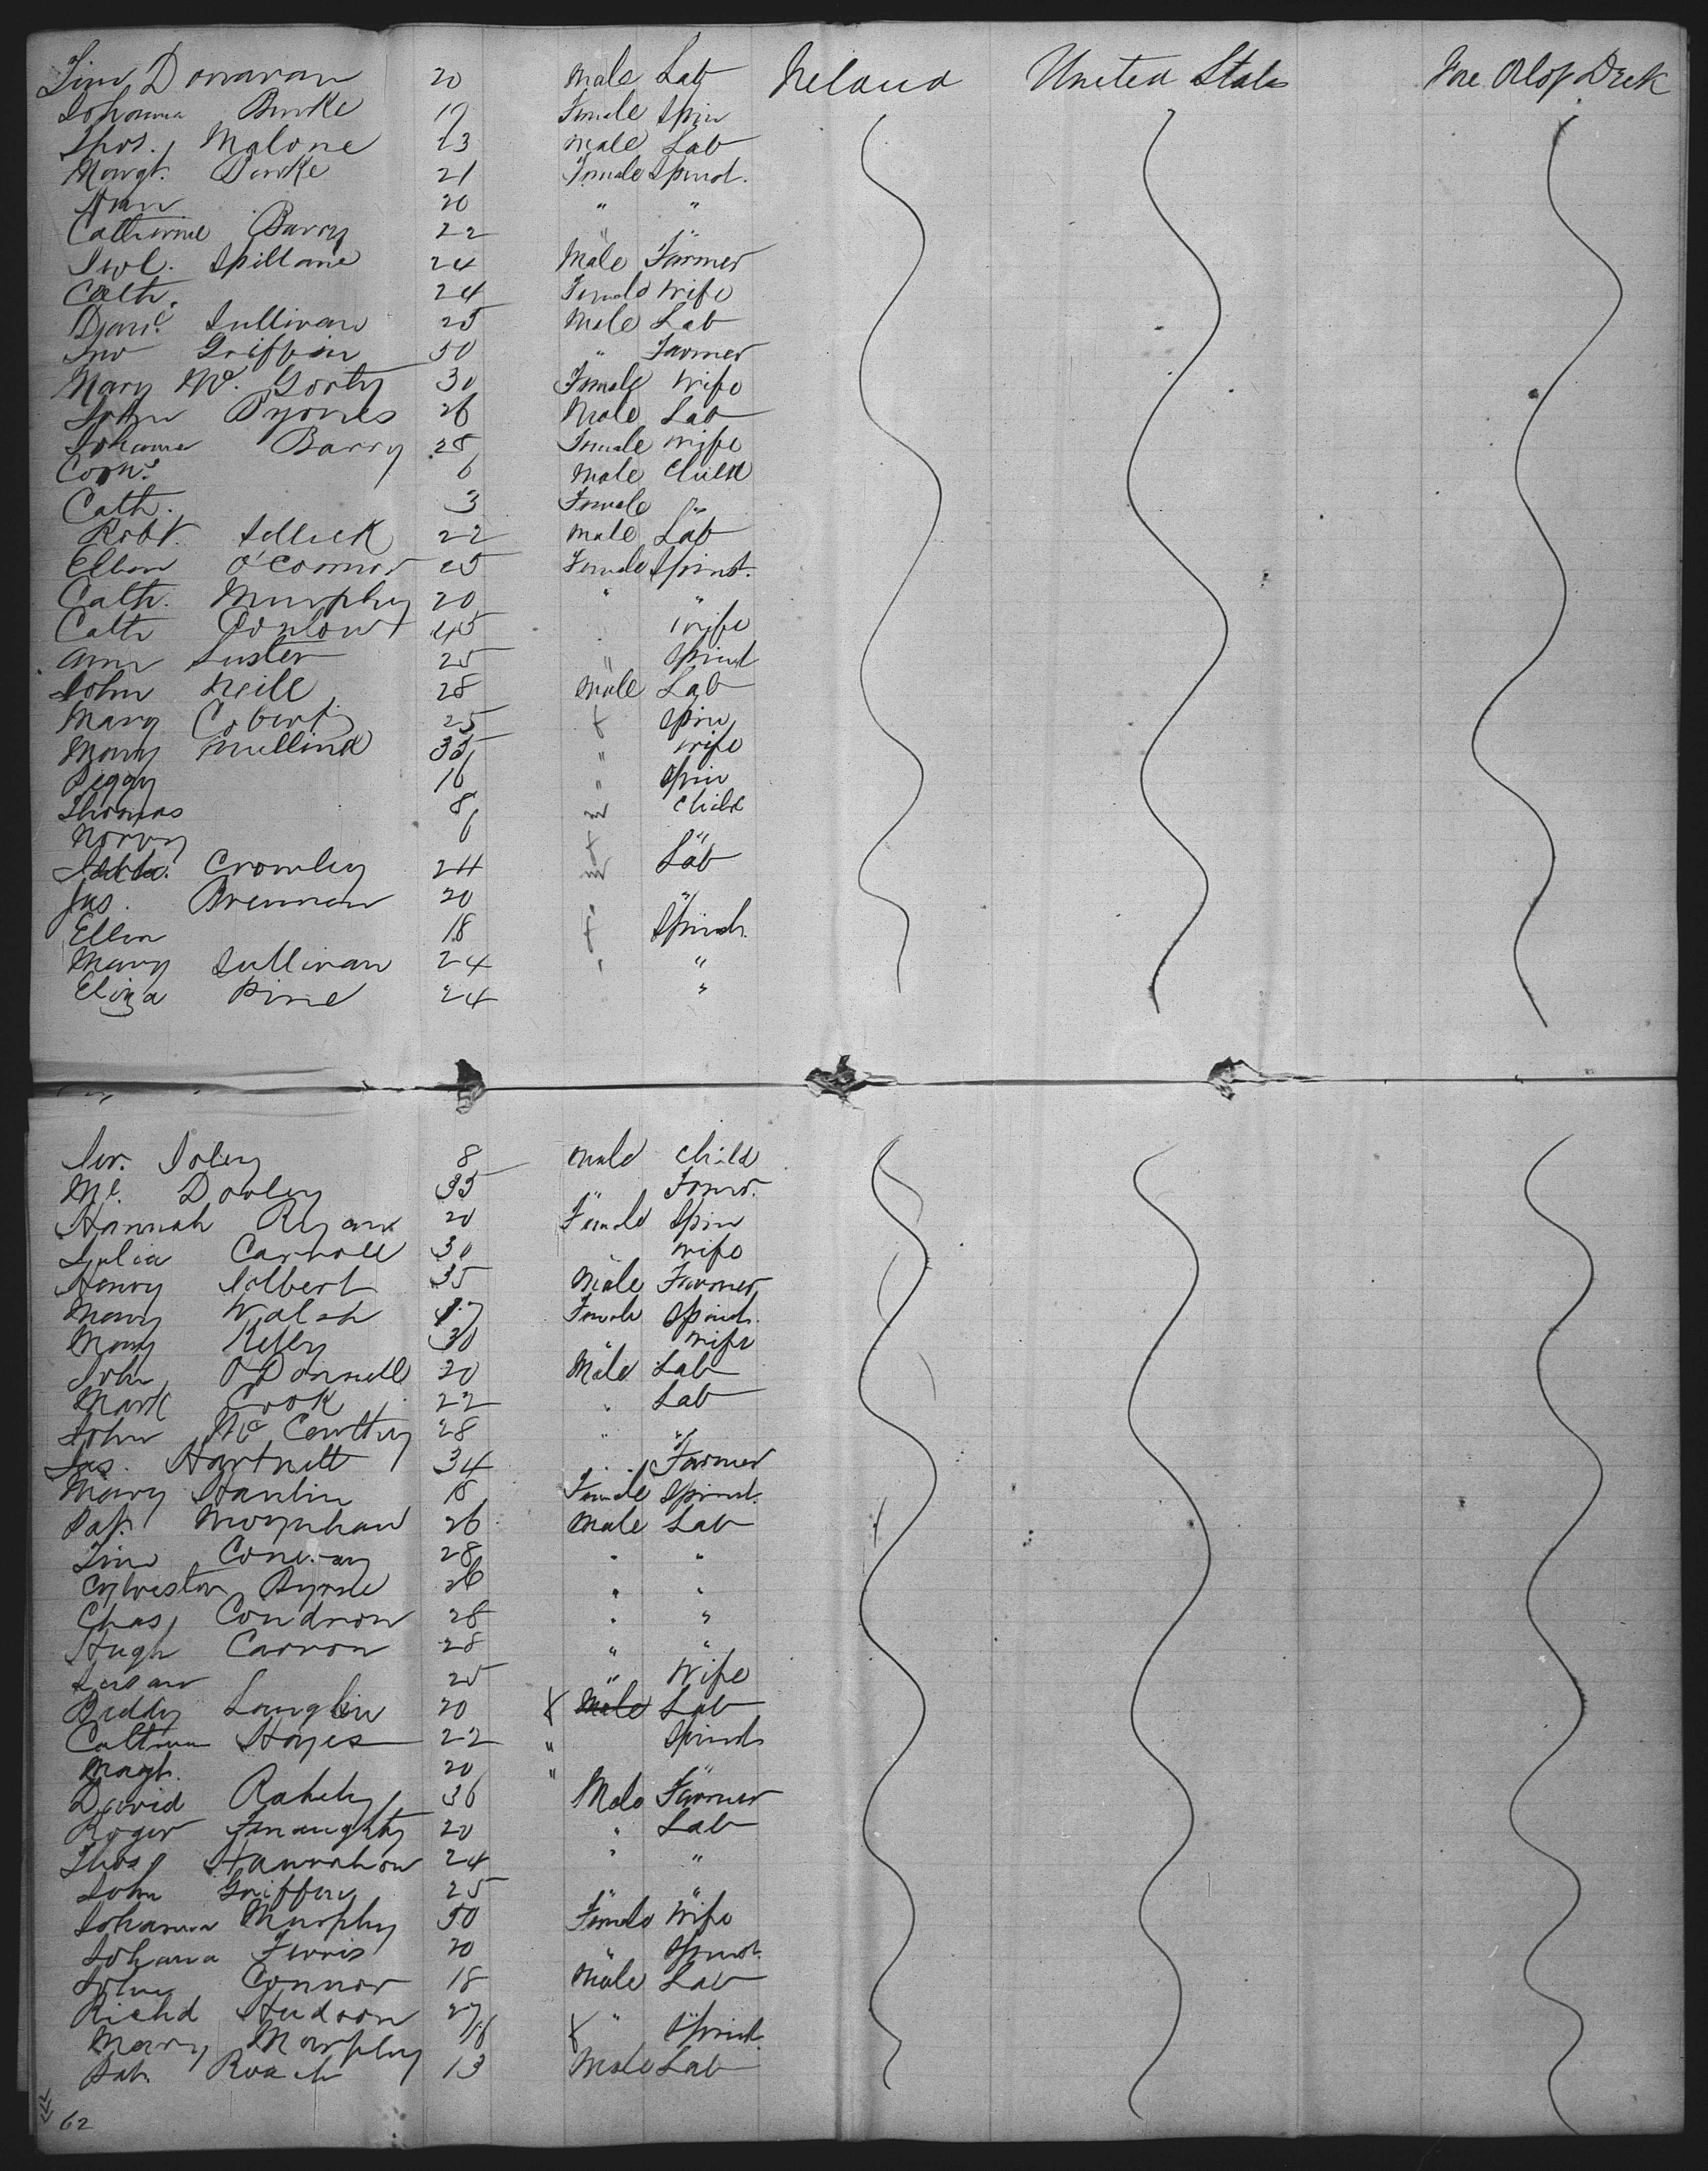 Tim Donavan 20 Male Lab Ireland United States Fore Orlop Deck
Johanna Burke 19 Female Spin
Thos. Malone 23 Male Lab
Margt. Burke 21 Female Spinst.
Ann 20 " "
Catherine Barry 22 " "
Spillane 24 Male Farmer
Cath. 24 Female Wife
Danl. Sullivan 25 Male Lab
Jno Griffin 50 " Farmer
Mary Mc. Gorty 30 Female Wife
John Pyones 26 Male Lab
Johanna Barry 28 Female Wife
Corns. 6 Male Child
Cath. 3 Female "
Robt. Selleck 22 Male Lab
Ellen O'Connor 25 Female Spinst.
Cath. Murphy 20 " "
Cath Conlow 45 " Wife
Ann Luster 25 " Spinst
John Neill 28 Male Lab
Mary Cobert 25 f Spin
Mary Mullins 35 " Wife
Peggy 16 " Spin
Thomas 8 m Child
Norry 6 f "
Crowley 24 m Lab
Jas. Brennan 20 " "
Ellen 18 f Spinst.
Mary Sullivan 24 " "
Eliza Pine 24 "
Jer. Foley 8 Male Child
Ml. Dooley 35 " Farmr.
Hannah Ryan 20 Female Spin
Julia Carroll 30 Wife
Henry Tolbert 35 Male Farmer
Mary Walsh 17 Female Spinst.
Mary Kelly 30 " Wife
John O'Donnell 20 Male Lab
Mark Cook 22 " Lab
John Mc Carthy 28 " "
Jas. Hartnett 34 " Farmer
Mary Hanlin 18 Female Spinst.
Pat. Moynhan 26 Male Lab
Tim 28 " "
Cylvester Byrne 26 " "
Chas. Condron 28 " "
Hugh Carron 28 " "
Susan 25 " Wife
Biddy Langlin 20 f Male Lab
Cathrine Hayes 22 " Spinst
Magt. 20 " "
David Rahely 36 Male Farmer
Roger Fenaughty 20 " Lab
Thos. Hanrahan 24 " "
John Griffin 25 " "
Johanna Murphy 50 Female Wife
Johana Ferris 20 " Spinst.
John Connor 18 Male Lab
Richd Hudson 27 " "
Mary Murphy 18 f Spinst.
Pat. Roach 13 Male Lab
62